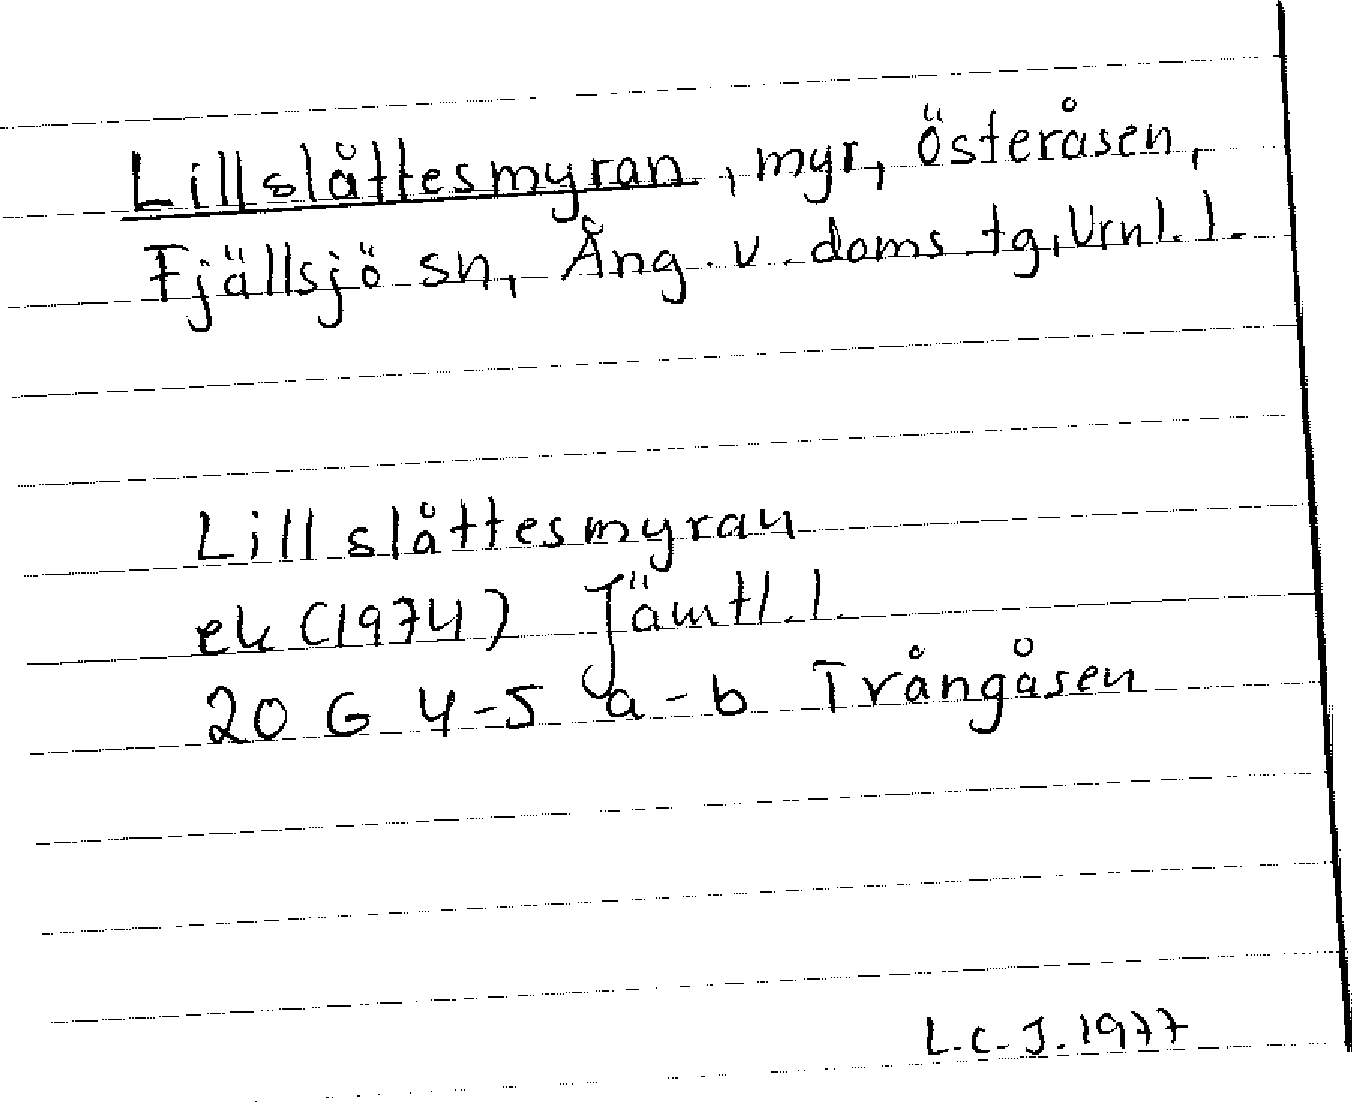 Lillslåttesmyran, myr, Österåsen,
Fjällsjö sn, Ång. v. doms tg, Vrnl. l.
Lillslåttesmyran
ek (1974) Jämtl. l.
20 G 4-5 a-b Trångåsen
L.C.J. 1977